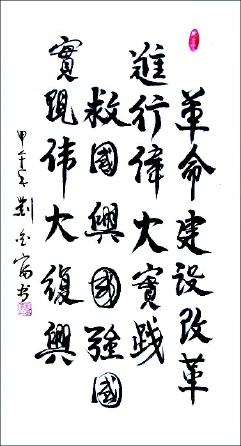 革命建设改革
進行偉大實踐
救國興國強國
實現伟大復興
甲午年劉金富书